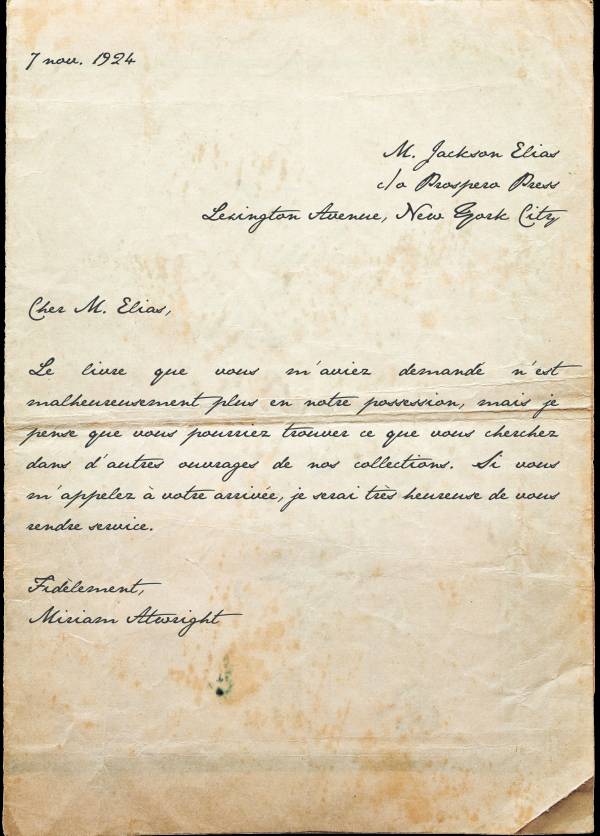 7 nov. 1924
M. Jackson Elias
c/o Prospero Press
Lexington Avenue, New York City
Cher M. Elias,
Le livre que vous m'aviez demandé n'est
malheureusement plus en notre possession, mais je
pense que vous pourriez trouver ce que vous cherchez
dans d'autres ouvrages de nos collections. Si vous
m'appelez à votre arrivée, je serai très heureuse de vous
rendre service.
Fidèlement,
Miriam Atwright